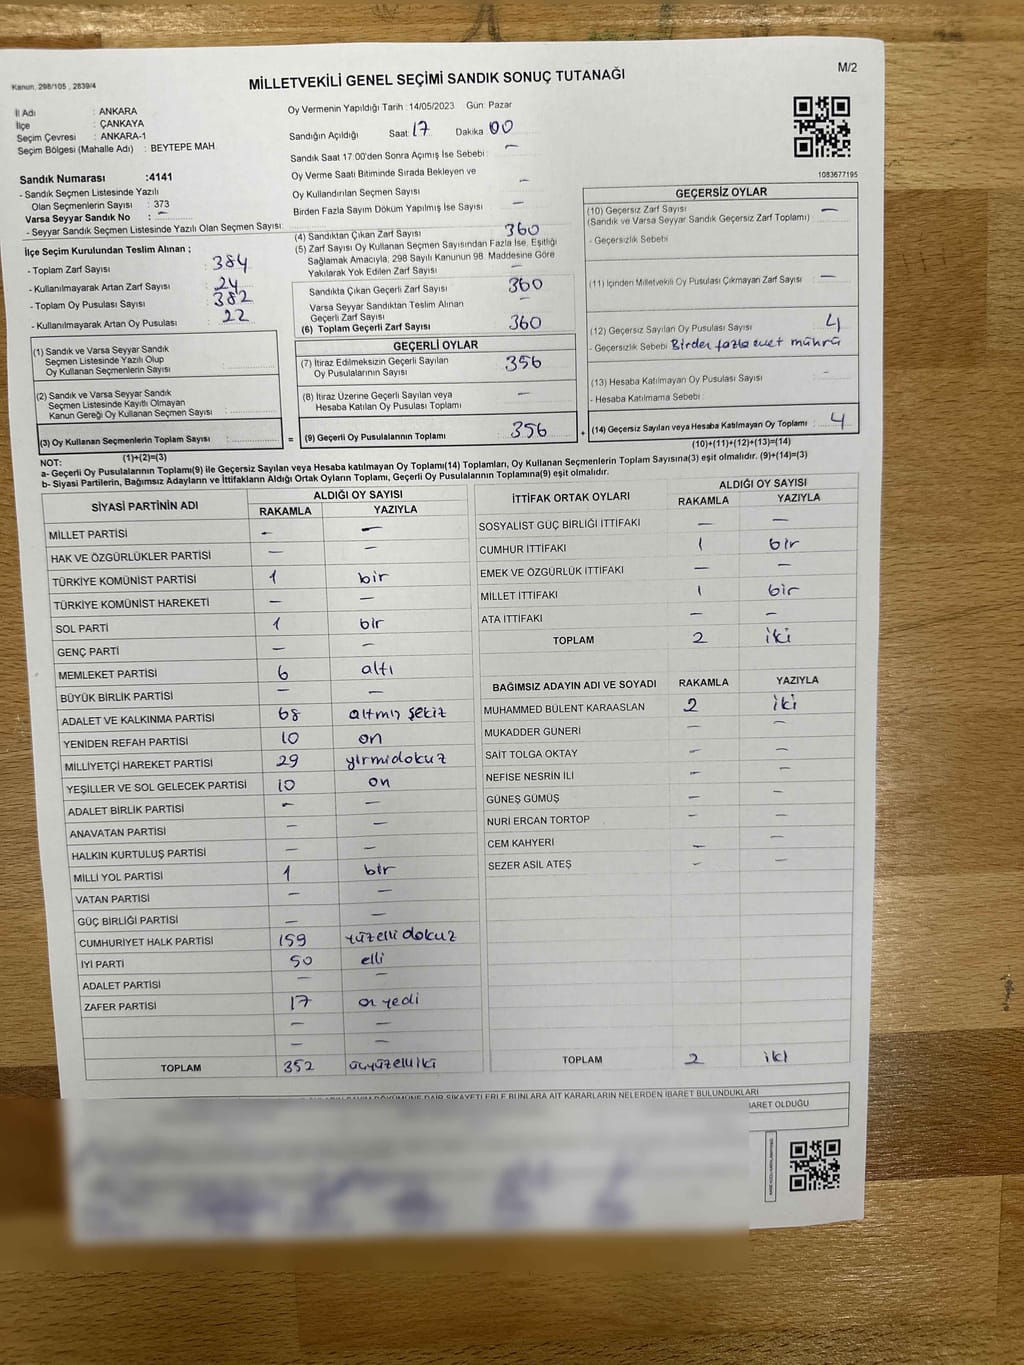 Kanun. 298/105 , 2839/4
MİLLETVEKİLİ GENEL SEÇİMİ SANDIK SONUÇ TUTANAĞI
M/2
İl Adı : ANKARA
İlçe : ÇANKAYA
Seçim Çevresi : ANKARA-1
Seçim Bölgesi (Mahalle Adı) : BEYTEPE MAH.
Oy Vermenin Yapıldığı Tarih : 14/05/2023 Gün: Pazar
Sandığın Açıldığı Saat 17 Dakika 00
Sandık Saat 17:00'den Sonra Açımış İse Sebebi : —
Oy Verme Saati Bitiminde Sırada Bekleyen ve
Oy Kullandırılan Seçmen Sayısı —
Birden Fazla Sayım Döküm Yapılmış İse Sayısı —
1083677195
Sandık Numarası :4141
- Sandık Seçmen Listesinde Yazılı
Olan Seçmenlerin Sayısı : 373
Varsa Seyyar Sandık No : —
- Seyyar Sandık Seçmen Listesinde Yazılı Olan Seçmen Sayısı:
İlçe Seçim Kurulundan Teslim Alınan ;
- Toplam Zarf Sayısı : 384
- Kullanılmayarak Artan Zarf Sayısı : 24
- Toplam Oy Pusulası Sayısı : 382
- Kullanılmayarak Artan Oy Pusulası : 22
(1) Sandık ve Varsa Seyyar Sandık
Seçmen Listesinde Yazılı Olup
Oy Kullanan Seçmenlerin Sayısı :
(2) Sandık ve Varsa Seyyar Sandık
Seçmen Listesinde Kayıtlı Olmayan
Kanun Gereği Oy Kullanan Seçmen Sayısı :
(3) Oy Kullanan Seçmenlerin Toplam Sayısı :
(1)+(2)=(3)
(4) Sandıktan Çıkan Zarf Sayısı 360
(5) Zarf Sayısı Oy Kullanan Seçmen Sayısından Fazla İse, Eşitliği
Sağlamak Amacıyla, 298 Sayılı Kanunun 98. Maddesine Göre
Yakılarak Yok Edilen Zarf Sayısı —
Sandıkta Çıkan Geçerli Zarf Sayısı 360
Varsa Seyyar Sandıktan Teslim Alınan
Geçerli Zarf Sayısı —
(6) Toplam Geçerli Zarf Sayısı 360
GEÇERLİ OYLAR
(7) İtiraz Edilmeksizin Geçerli Sayılan
Oy Pusulalarının Sayısı 356
(8) İtiraz Üzerine Geçerli Sayılan veya
Hesaba Katılan Oy Pusulası Toplamı —
= (9) Geçerli Oy Pusulalarının Toplamı 356
GEÇERSİZ OYLAR
(10) Geçersiz Zarf Sayısı —
(Sandık ve Varsa Seyyar Sandık Geçersiz Zarf Toplamı)
- Geçersizlik Sebebi
(11) İçinden Milletvekili Oy Pusulası Çıkmayan Zarf Sayısı —
(12) Geçersiz Sayılan Oy Pusulası Sayısı 4
- Geçersizlik Sebebi Birden fazla evet mührü
(13) Hesaba Katılmayan Oy Pusulası Sayısı -
- Hesaba Katılmama Sebebi :
+ (14) Geçersiz Sayılan veya Hesaba Katılmayan Oy Toplamı : 4
(10)+(11)+(12)+(13)=(14)
NOT:
a- Geçerli Oy Pusulalarının Toplamı(9) ile Geçersiz Sayılan veya Hesaba katılmayan Oy Toplamı(14) Toplamları, Oy Kullanan Seçmenlerin Toplam Sayısına(3) eşit olmalıdır. (9)+(14)=(3)
b- Siyasi Partilerin, Bağımsız Adayların ve İttifakların Aldığı Ortak Oyların Toplamı, Geçerli Oy Pusulalarının Toplamına(9) eşit olmalıdır.
SİYASİ PARTİNİN ADI ALDIĞI OY SAYISI
RAKAMLA YAZIYLA
MİLLET PARTİSİ - —
HAK VE ÖZGÜRLÜKLER PARTİSİ — —
TÜRKİYE KOMÜNİST PARTİSİ 1 bir
TÜRKİYE KOMÜNİST HAREKETİ — —
SOL PARTİ 1 bir
GENÇ PARTİ — —
MEMLEKET PARTİSİ 6 altı
BÜYÜK BİRLİK PARTİSİ — —
ADALET VE KALKINMA PARTİSİ 68 altmış sekiz
YENİDEN REFAH PARTİSİ 10 on
MİLLİYETÇİ HAREKET PARTİSİ 29 yirmidokuz
YEŞİLLER VE SOL GELECEK PARTİSİ 10 on
ADALET BİRLİK PARTİSİ — —
ANAVATAN PARTİSİ — —
HALKIN KURTULUŞ PARTİSİ — —
MİLLİ YOL PARTİSİ 1 bir
VATAN PARTİSİ — —
GÜÇ BİRLİĞİ PARTİSİ — —
CUMHURİYET HALK PARTİSİ 159 yüzelli dokuz
İYİ PARTİ 50 elli
ADALET PARTİSİ — —
ZAFER PARTİSİ 17 on yedi
— —
— —
TOPLAM 352 üçyüzelliiki
İTTİFAK ORTAK OYLARI ALDIĞI OY SAYISI
RAKAMLA YAZIYLA
SOSYALİST GÜÇ BİRLİĞİ İTTİFAKI — —
CUMHUR İTTİFAKI 1 bir
EMEK VE ÖZGÜRLÜK İTTİFAKI — —
MİLLET İTTİFAKI 1 bir
ATA İTTİFAKI — —
TOPLAM 2 iki
BAĞIMSIZ ADAYIN ADI VE SOYADI RAKAMLA YAZIYLA
MUHAMMED BÜLENT KARAASLAN 2 iki
MUKADDER GÜNERİ — —
SAİT TOLGA OKTAY — —
NEFİSE NESRİN İLİ — —
GÜNEŞ GÜMÜŞ — —
NURİ ERCAN TORTOP — —
CEM KAHYERİ — —
SEZER ASİL ATEŞ — —
TOPLAM 2 iki
DÖKÜMÜNE DAİR ŞİKAYETLERLE BUNLARA AİT KARARLARIN NELERDEN İBARET BULUNDUKLARI
İBARET OLDUĞU